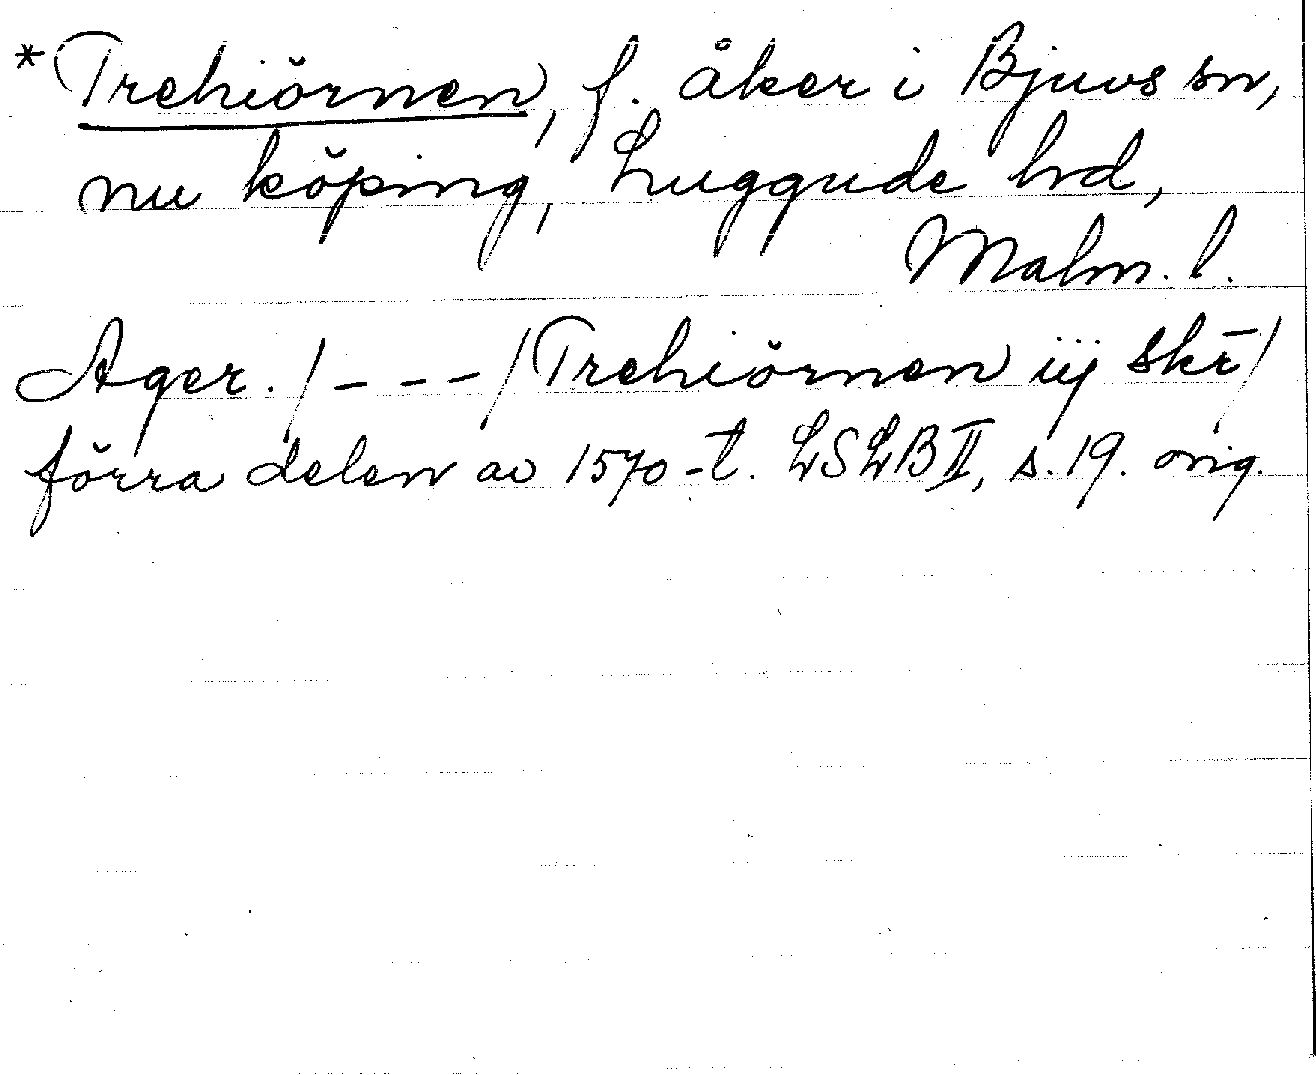 *Trehiörnen, f. åker i Bjuvs sn,
nu köping, Luggude hd,
Malm. l.
Ager. / - - - / Trehiörnen iij skr̄ /
förra delen av 1570-t. LSLB II, s. 19. orig.